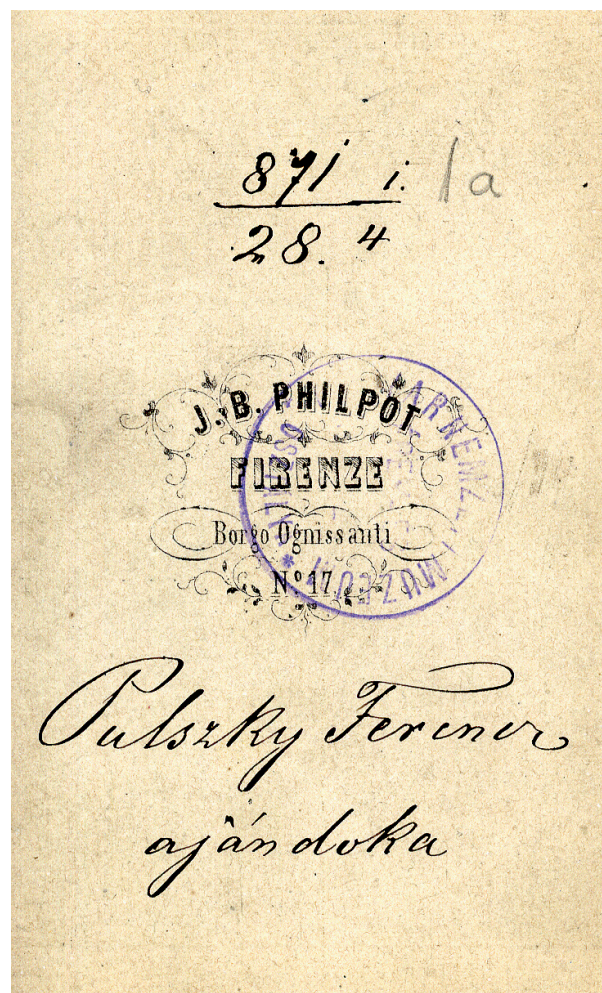 871 i. 1a
28. 4
J. B. PHILPOT
FIRENZE
Borgo Ognissanti
Nº 17
NEMZETI MUZEUM
Pulszky Ferencz
ajándoka